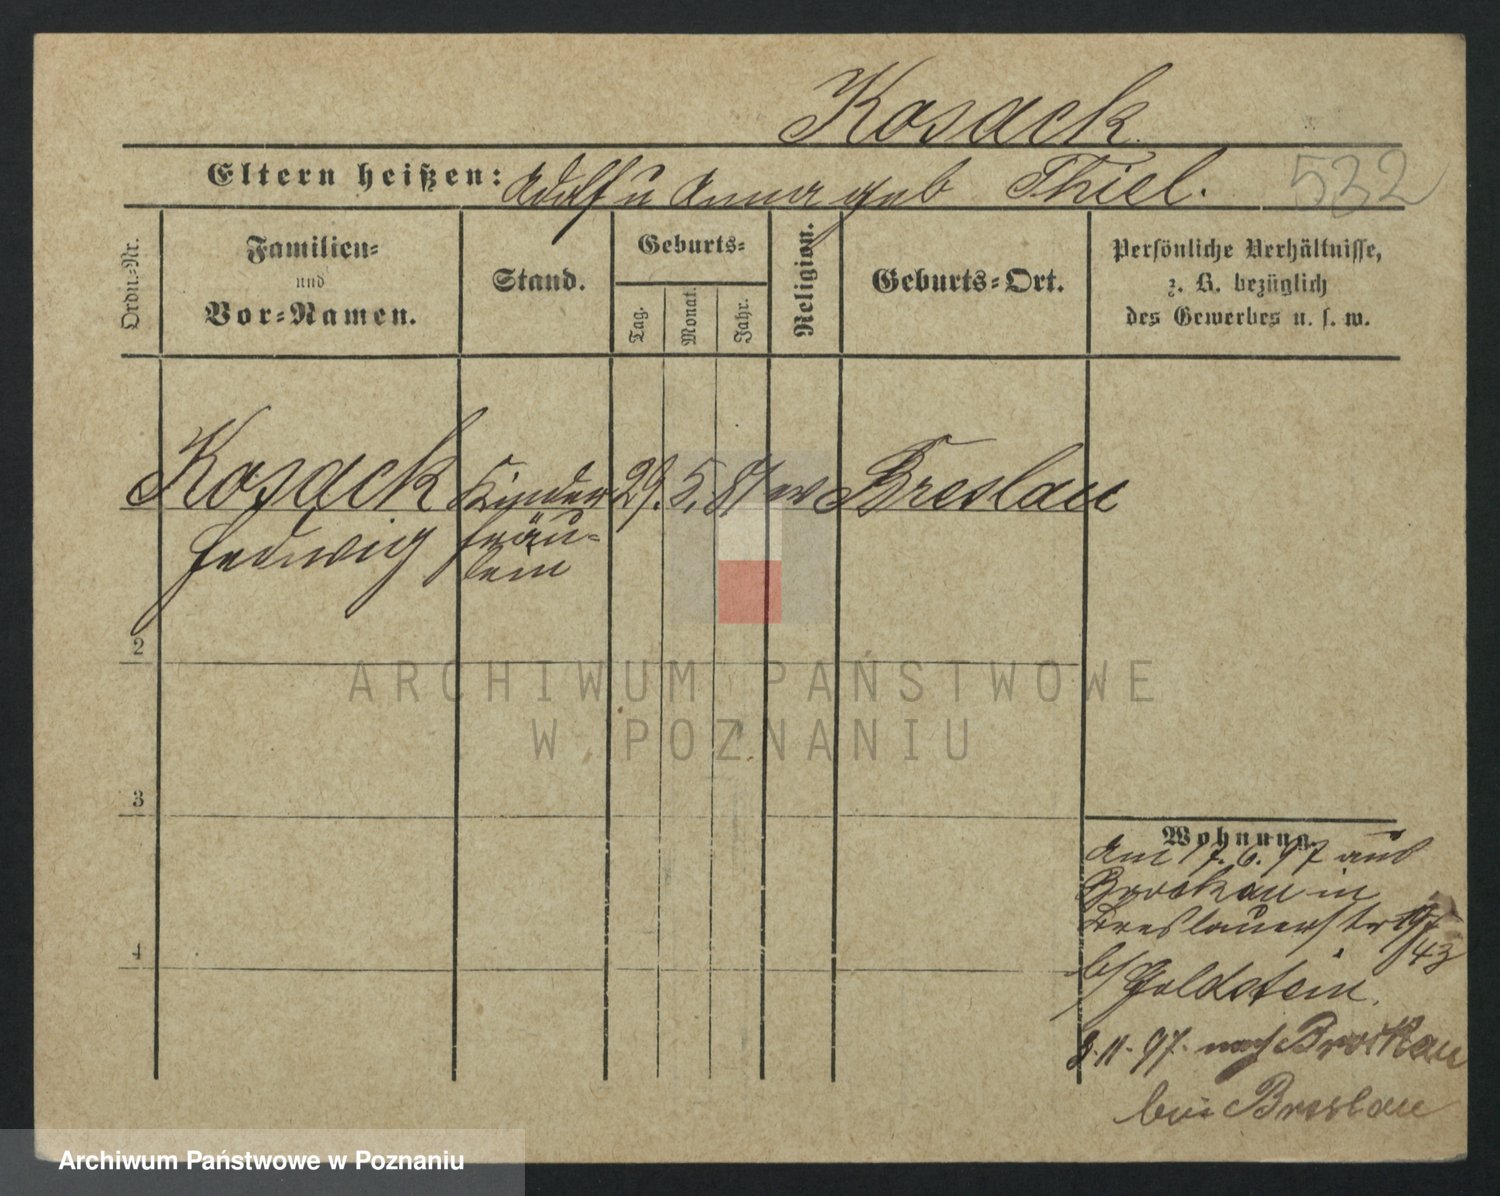 Kosack
Eltern heißen: Adolf u Anna geb Thiel.
532
Ordn.-Nr.
Familien-
und
Vor-Namen.
Stand.
Geburts-
Tag.
Monat.
Jahr.
Religion.
Geburts-Ort.
Persönliche Verhältnisse,
z. B. bezüglich
des Gewerbes u. s. w.
Kosack Kinder 29. 5. 81 ev Breslau
Hedwig fräu-
lein
2
ARCHIWUM PAŃSTWOWE
W POZNANIU
3
Wohnung.
Am 17. 6. 97 aus
Brockau in
Breslauerstr
43
b/ Goldstein.
8. 11. 97. nach Brockau
bei Breslau
4
Archiwum Państwowe w Poznaniu